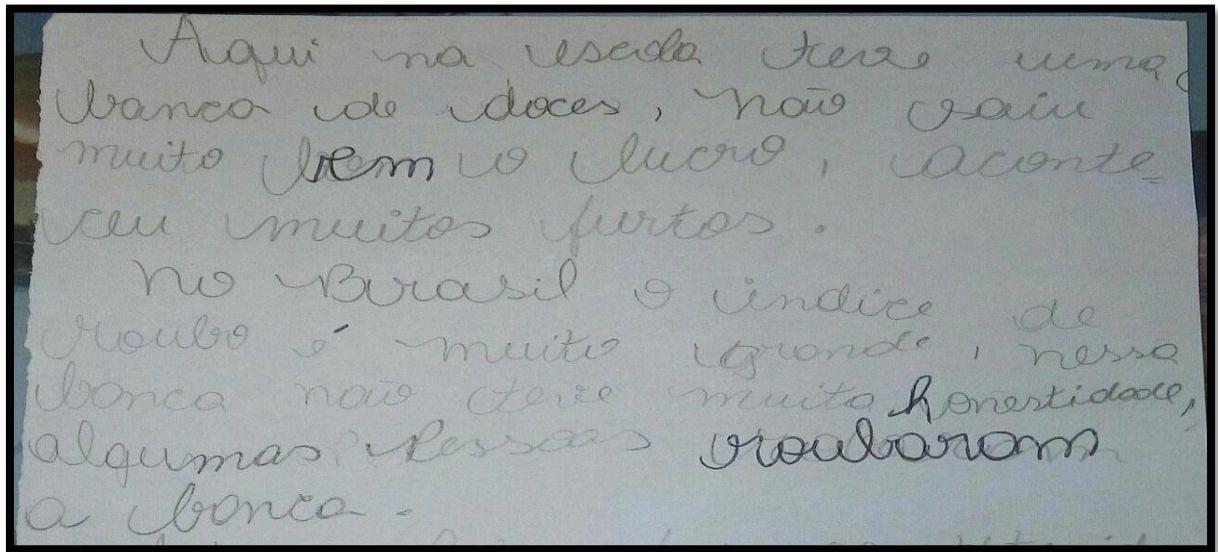 Aqui na escola teve uma
banca de doces, não saiu
muito bem o lucro, aconte-
ceu muitos furtos.
No Brasil o índice de
roubo é muito grande, nessa
banca não teve muita honestidade,
algumas pessoas roubaram
a banca.